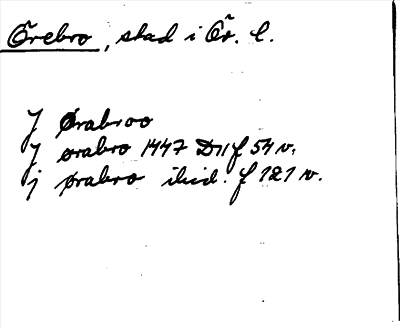 Örebro, stad i Ör. l.
J Ørabroo
J orabro 1447 D11 f 54 v.
j ørabro ibid. f 121 v.